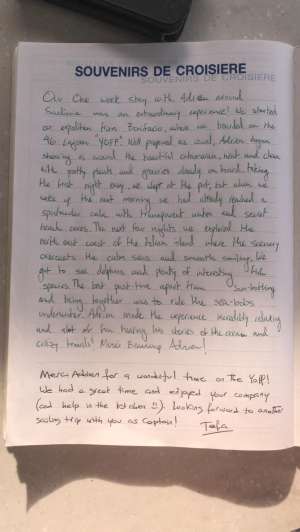 SOUVENIRS DE CROISIERE
Our one week stay with Adrien around
Sardinia was an extraordinary experience! We started
our expedition from Bonifacio, where we boarded on the
Lagoon "YOFF". Well prepared as usual, Adrien began
showing us around the beautiful catamaran, neat and clean
with potty plants and groceries already on board. Taking
the first night easy, we slept at the port, but when we
woke up the next morning we had already reached a
spectacular cake with transparent water and secret
beach caves. The next few nights we explored the
north east coast of the Italian island where the scenery
the calm seas and smooth sailing. We
got to see dolphins and plenty of interesting fish
species. The best past time apart from sun-bathing
and being together was to ride the sea-bobs
underwater. Adrien made the experience incredibly relaxing
and alot of fun hearing his stories of the ocean and
crazy travels! Merci Adrien!
Merci Adrien for a wonderful time on the Yoff!
We had a great time and enjoyed your company
(and help in the kitchen !). Looking forward to another
sailing trip with you as Captain!